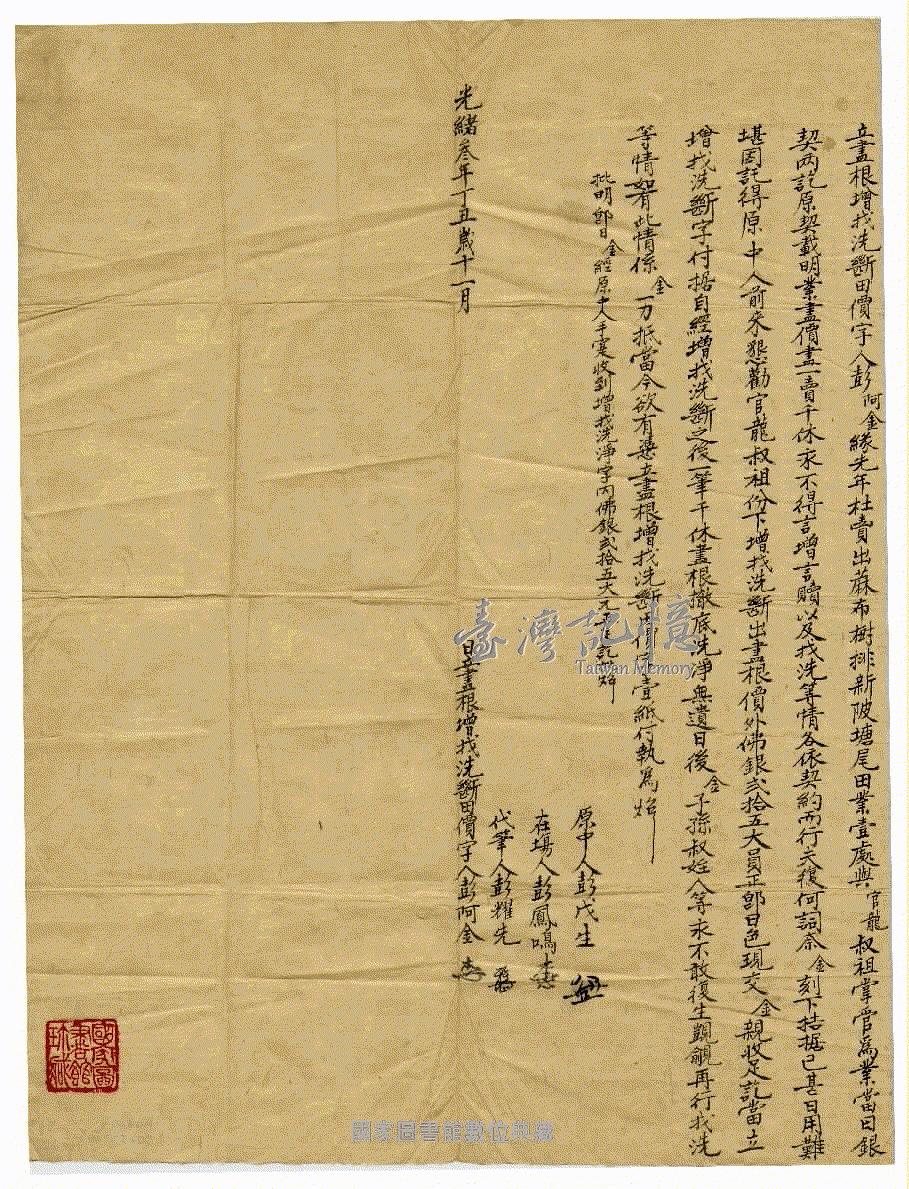 立盡根增找洗斷田價字人彭阿金緣先年杜賣出蔴布樹排新陂塘尾田業壹處與官龍叔祖掌管為業當日銀
契両訖原契載明業盡價盡一賣千休永不得言增言贖以及找洗等情各依契約而行夫復何詞奈金刻下拮据已甚日用難
堪因託得原中人前來懇勸官龍叔祖份下增找洗斷出盡根價外佛銀弍拾五大員正即日色現交金親收足訖當立
增找洗斷字付據自經增找洗斷之後一筆千休盡根撤底洗淨無遺日後金子孫叔姪人等永不敢復生覬覦再行找洗
等情如有此情係金一力抵當今欲有憑立盡根增找洗斷田價字壹紙付執為炤
批明即日金經原中人手寔收到增找洗淨字內佛銀弍拾五大元足訖炤
原中人彭戊生
在場人彭鳳鳴
代筆人彭耀先
光緒叁年丁丑歲十一月 日立盡根增找洗斷田價字人彭阿金
臺灣記憶
Taiwan Memory
國家圖書館數位典藏